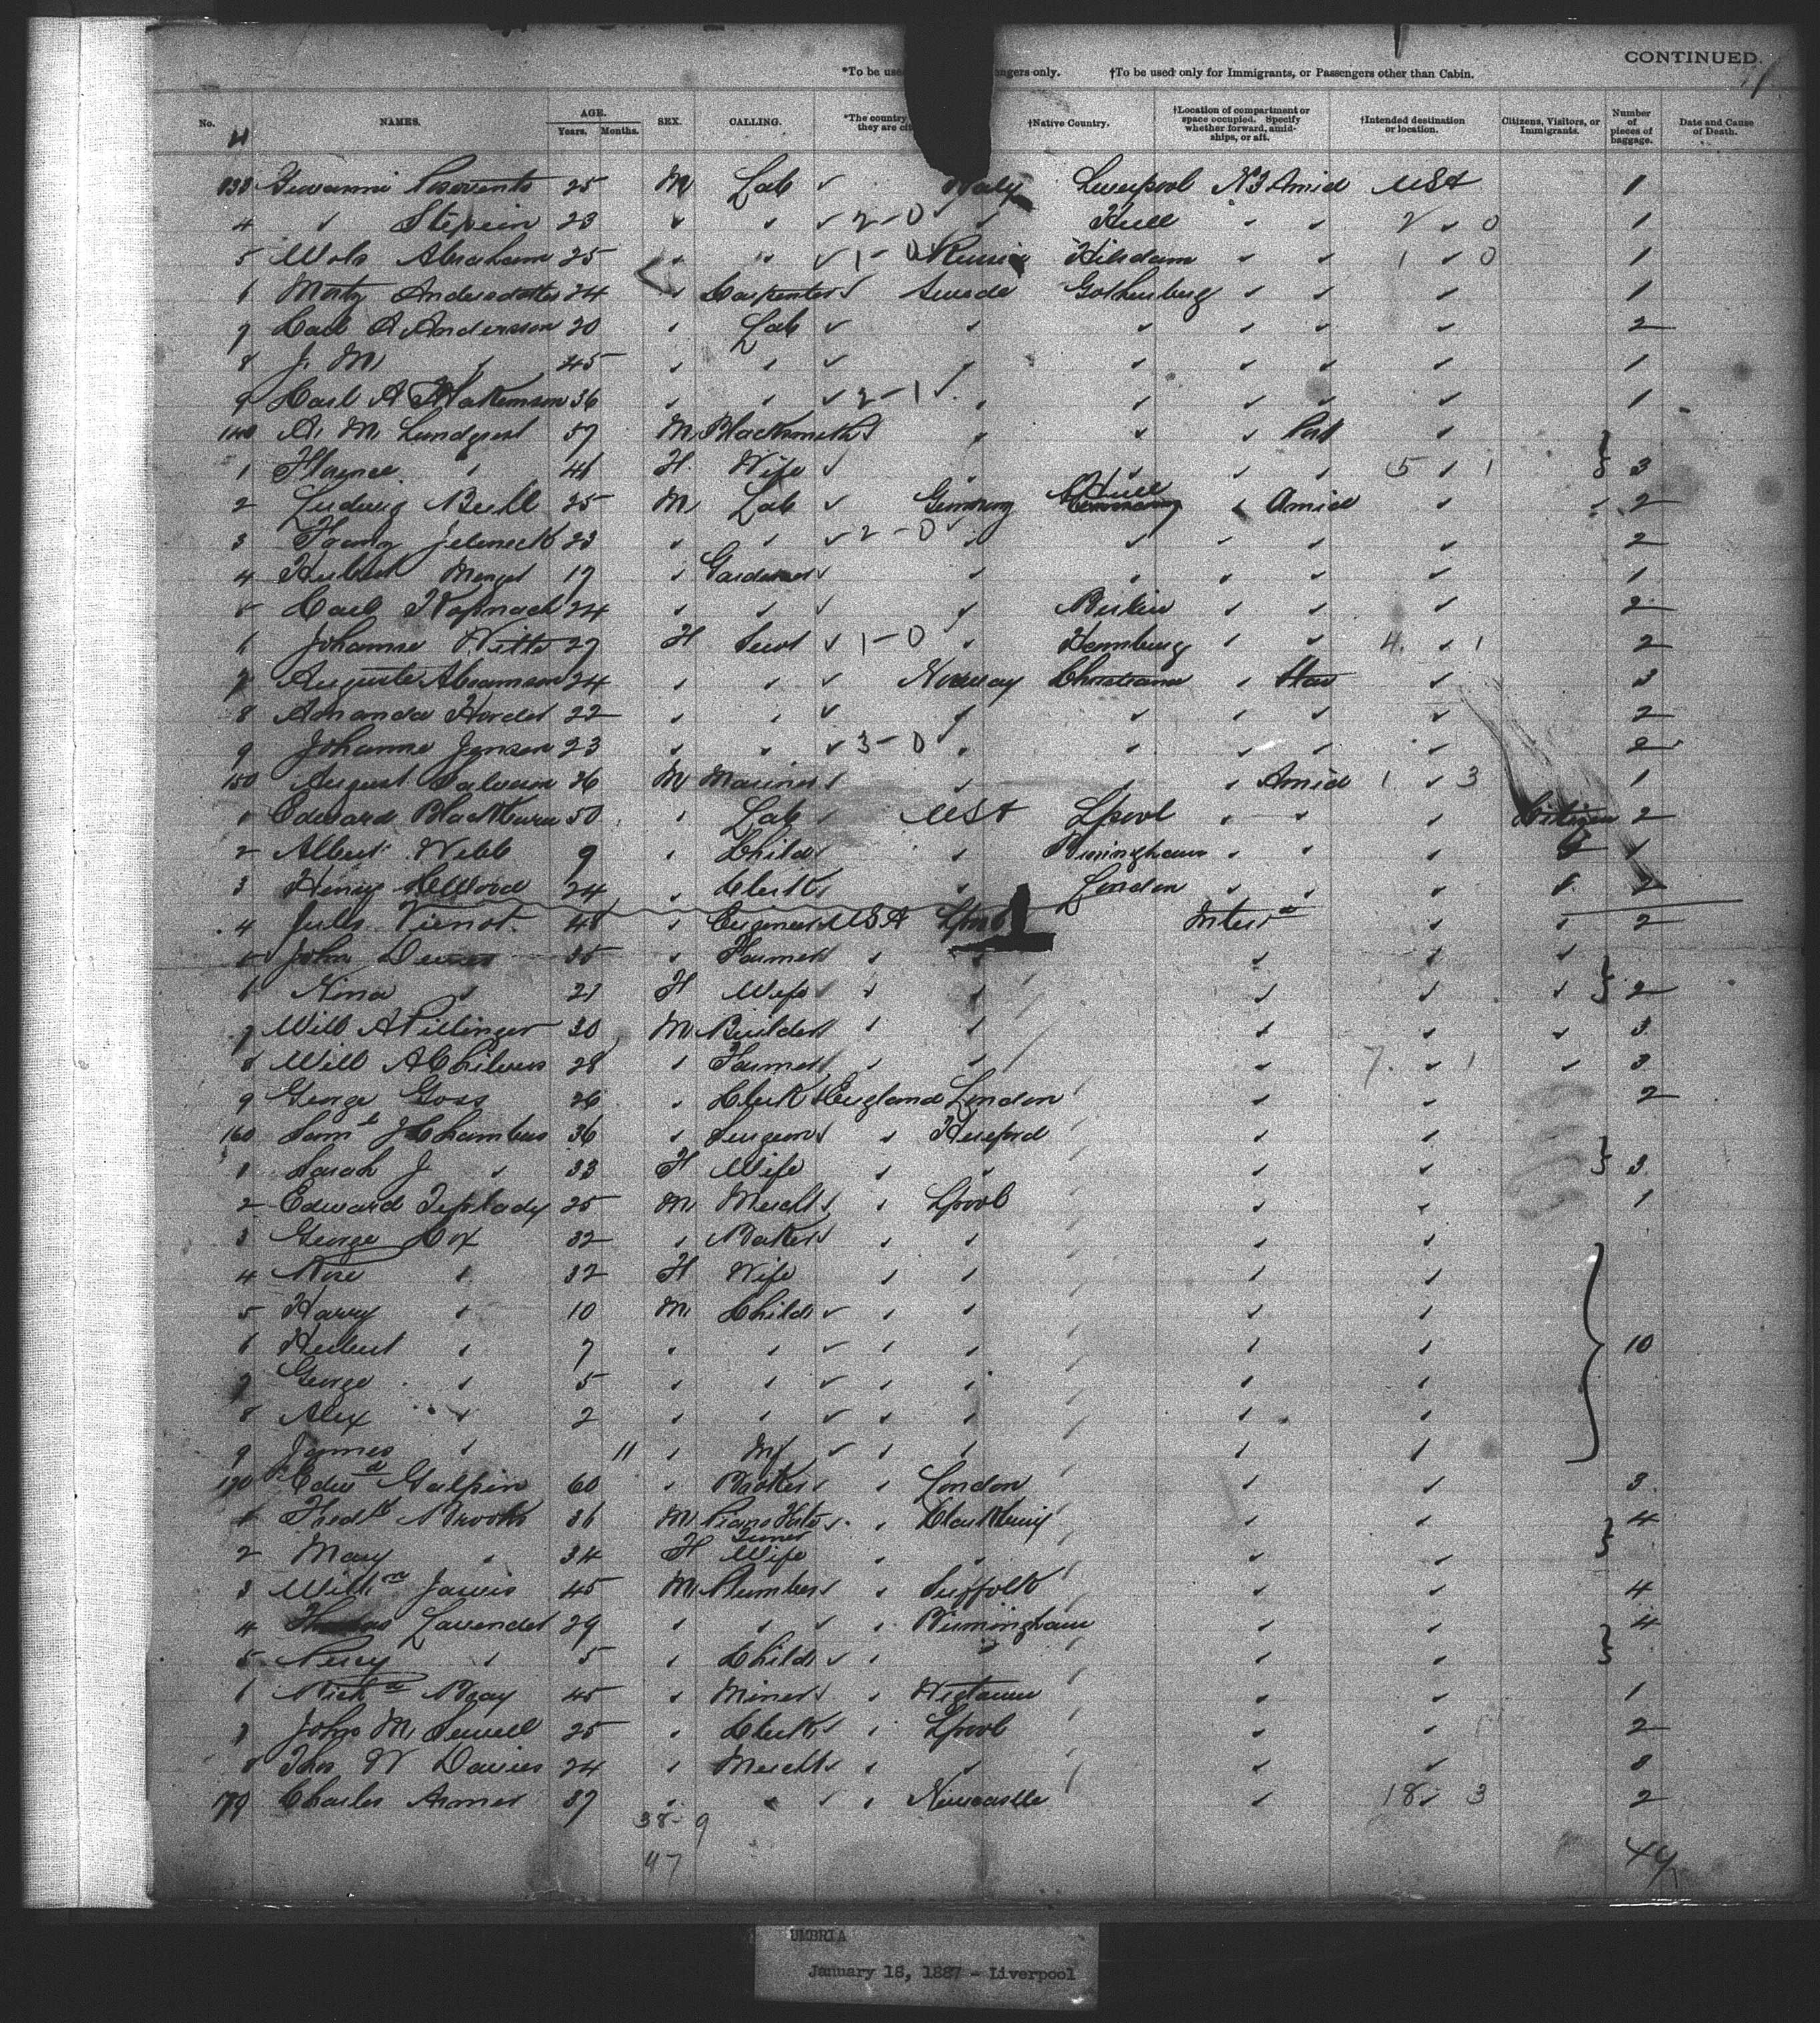 CONTINUED.
*To be use ngers only. †To be used only for Immigrants, or Passengers other than Cabin.
No. NAMES. AGE. Years. Months. SEX. CALLING. *The country they are cit †Native Country. †Location of compartment or space occupied. Specify whether forward, amidships, or aft. †Intended destination or location. Citizens, Visitors, or Immigrants. Number of pieces of baggage. Date and Cause of Death.
133 Giovanni 25 M Lab ✓ Italy Liverpool No 3 Amid USA 1
4 ✓ 23 ✓ ✓ ✓ 2-0 ✓ ✓ Hull ✓ ✓ 2 ✓ 0 1
5 Abraham 25 ✓ ✓ ✓ 1-0 Russia ✓ ✓ 1 ✓ 0 1
6 24 ✓ Carpenter ✓ Swede Gothenburg ✓ ✓ ✓ 1
7 Carl A Andersson 20 ✓ Lab ✓ ✓ ✓ ✓ ✓ ✓ 2
8 J. M. ✓ 45 ✓ ✓ ✓ ✓ ✓ ✓ ✓ ✓ 1
9 Carl A Hakenson 36 ✓ ✓ ✓ 3-1 ✓ ✓ ✓ ✓ ✓ ✓ 1
140 A. M. Lundqvist 57 M Blacksmith ✓ ✓ ✓ ✓ ✓
1 ✓ 41 F Wife ✓ ✓ ✓ ✓ ✓ 5 ✓ 1 } 3
2 Ludwig 25 M Lab ✓ Germany Hull ✓ Amid ✓ ✓ 2
3 Jelineck 23 ✓ ✓ ✓ 2-0 ✓ ✓ ✓ ✓ ✓ ✓ 2
4 17 ✓ Gardener ✓ ✓ ✓ ✓ ✓ ✓ 1
5 Carl 24 ✓ ✓ ✓ ✓ Berlin ✓ ✓ ✓ 2
6 Johanne Witte 27 F Servt ✓ 1-0 ✓ ✓ Hamburg ✓ ✓ 4 ✓ 1 2
7 Auguste Abramson 24 ✓ ✓ ✓ Norway Christiana ✓ ✓ 3
8 Amanda 22 ✓ ✓ ✓ ✓ ✓ ✓ ✓ ✓ 2
9 Johanne Jensen 23 ✓ ✓ ✓ 3-0 ✓ ✓ ✓ ✓ ✓ ✓ 2
150 August 26 M Mariner ✓ ✓ ✓ ✓ Amid 1 ✓ 3 1
1 Edward Blackburn 50 ✓ Lab ✓ USA Lpool ✓ ✓ ✓ Citizen 2
2 Albert Webb 9 ✓ Child ✓ ✓ Birmingham ✓ ✓ ✓ ✓ 1
3 Henry 24 ✓ Clerk ✓ ✓ London ✓ ✓ ✓ ✓ 2
4 Jules Vienot 48 ✓ Engineer USA Lpool ✓ ✓ 2
5 John 35 ✓ Farmer ✓ ✓ ✓ ✓ ✓ ✓
6 Nina ✓ 21 F Wife ✓ ✓ ✓ ✓ ✓ ✓ } 2
7 Will A Pillinger 30 M Builder ✓ ✓ ✓ ✓ ✓ ✓ 3
8 Will A Chilvers 28 ✓ Farmer ✓ ✓ ✓ ✓ 7 ✓ 1 ✓ 3
9 George Goss 26 ✓ Clerk ✓ England London ✓ ✓ 2
160 Saml J Chambers 36 ✓ Surgeon ✓ ✓ Hereford ✓ ✓
1 Sarah J ✓ 33 F Wife ✓ ✓ ✓ ✓ } 3
2 Edward 25 M Mercht ✓ ✓ Lpool ✓ ✓ 1
3 George Cox 32 ✓ Baker ✓ ✓ ✓ ✓ ✓
4 Rose ✓ 32 F Wife ✓ ✓ ✓ ✓
5 Harry ✓ 10 M Child ✓ ✓ ✓ ✓ ✓
6 Herbert ✓ 7 ✓ ✓ ✓ ✓ ✓ ✓ ✓ } 10
7 George ✓ 5 ✓ ✓ ✓ ✓ ✓ ✓ ✓
8 Alex ✓ 2 ✓ ✓ ✓ ✓ ✓ ✓ ✓
9 James ✓ 11 ✓ Inf ✓ ✓ ✓ ✓ ✓
170 Edwd Galpin 60 ✓ ✓ ✓ London ✓ ✓ 3
1 Fredk Brooks 36 M Piano Forte ✓ ✓ ✓ ✓ 4
Tuner
2 Mary ✓ 34 F Wife ✓ ✓ ✓ ✓ }
3 Willm 45 M Plumber ✓ ✓ Suffolk ✓ ✓ 4
4 Thomas Lavender 29 ✓ ✓ ✓ ✓ Birmingham ✓ ✓ 4
5 Percy ✓ 5 ✓ Child ✓ ✓ ✓ ✓ ✓ }
6 Richd Bray 45 ✓ Miner ✓ ✓ ✓ ✓ 1
7 John M. Sewell 25 ✓ Clerk ✓ ✓ Lpool ✓ ✓ 2
8 Thos W Davies 24 ✓ Mercht ✓ ✓ ✓ ✓ ✓ 3
179 Charles 37 ✓ ✓ ✓ ✓ Newcastle ✓ 18 ✓ 3 2
38-9
47
UMBRIA
January 18, 1887 - Liverpool